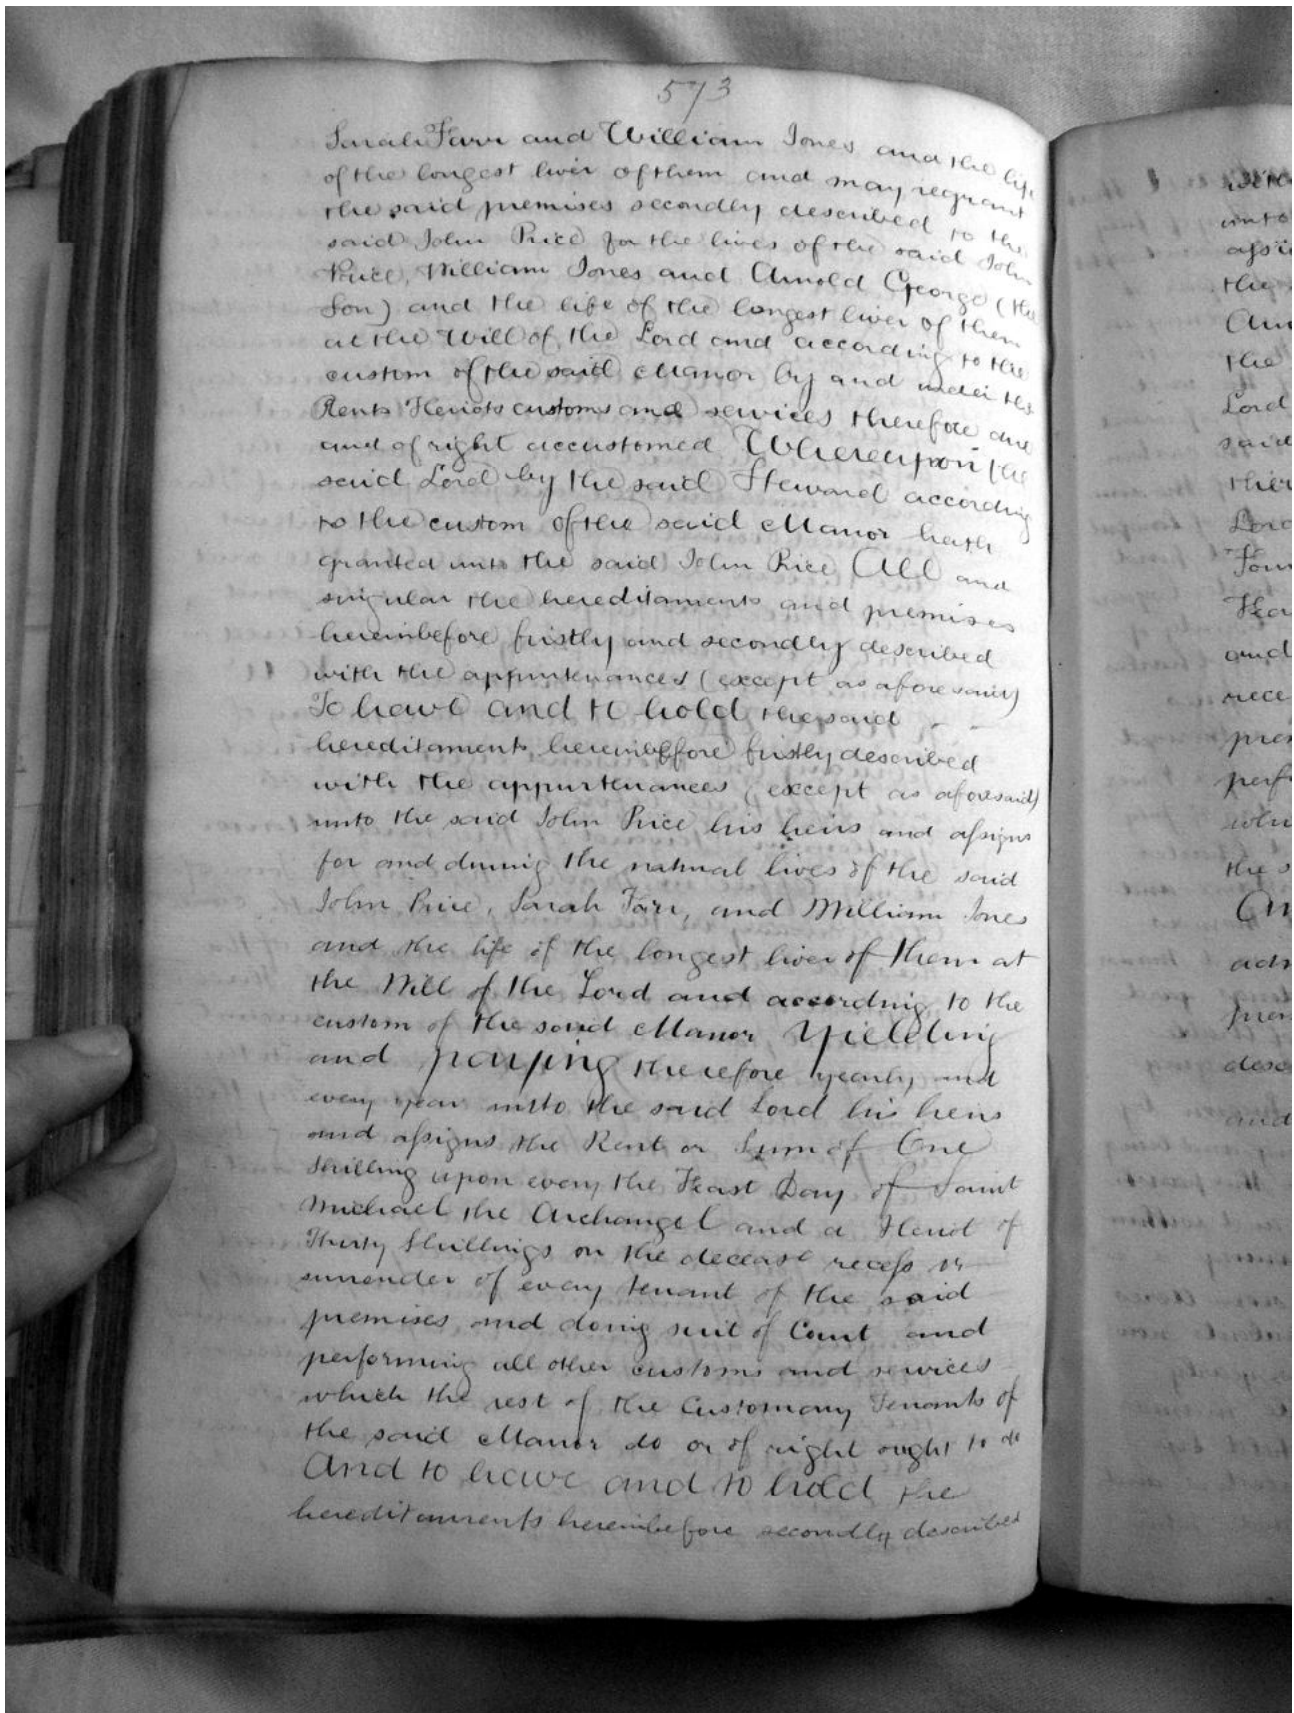 573
Sarah Farr and William Jones and the life
of the longest liver of them and may regrant
the said premises secondly described to the
said John Price for the lives of the said John
Price, William Jones and Arnold George (the
Son) and the life of the longest liver of them
at the Will of the Lord and according to the
custom of the said Manor by and under the
Rents Heriots customs and services therefore due
and of right accustomed Whereupon the
said Lord by the said Steward according
to the custom of the said Manor hath
granted unto the said John Price All and
singular the hereditaments and premises
hereinbefore firstly and secondly described
with the appurtenances (except as aforesaid)
To have and to hold the said
hereditaments hereinbefore firstly described
with the appurtenances (except as aforesaid)
unto the said John Price his heirs and assigns
for and during the natural lives of the said
John Price, Sarah Farr, and William Jones
and the life of the longest liver of them at
the Will of the Lord and according to the
custom of the said Manor Yielding
and paying therefore yearly and
every year unto the said Lord his heirs
and assigns the Rent or Sum of One
Shilling upon every the Feast Day of Saint
Michael the Archangel and a Heriot of
Thirty Shillings on the decease recess or
surrender of every tenant of the said
premises and doing suit of Court and
performing all other customs and services
which the rest of the Customary Tenants of
the said Manor do or of right ought to do
And to have and to hold the
hereditaments hereinbefore secondly described
unto
the
the
Lord
said
and
the s
and